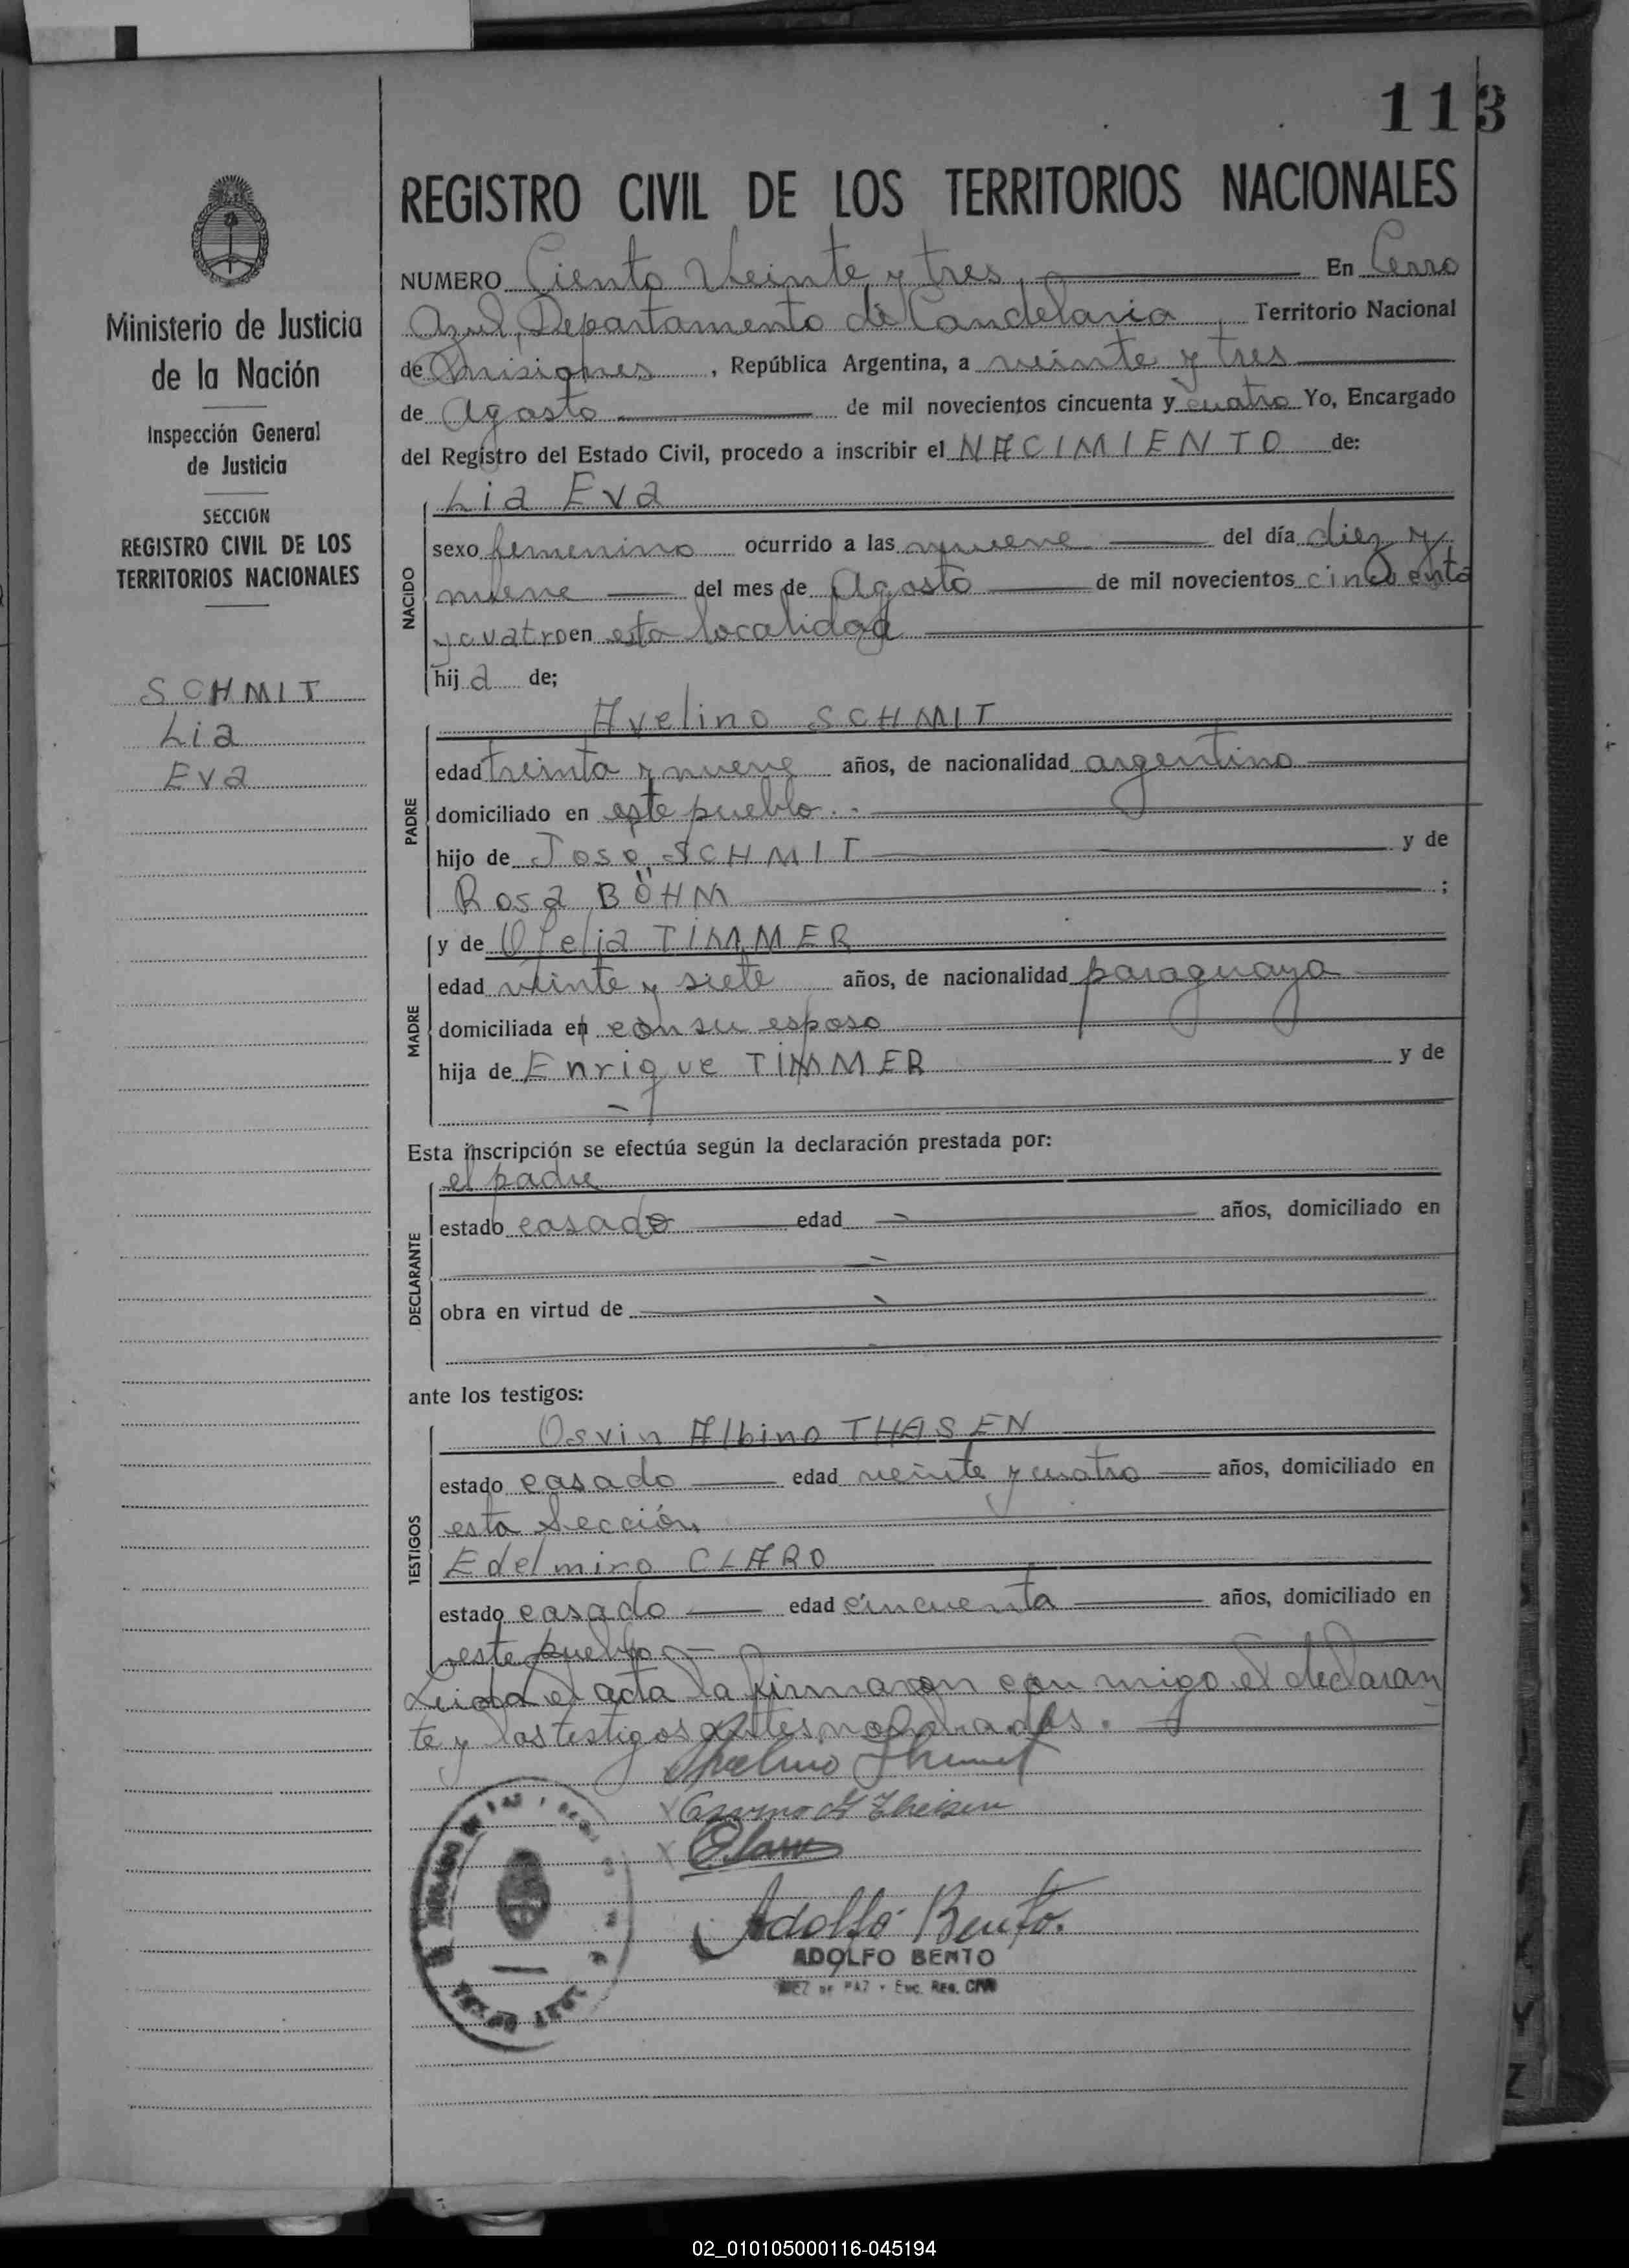 113
Ministerio de Justicia
de la Nación
Inspección General
de Justicia
SECCION
REGISTRO CIVIL DE LOS
TERRITORIOS NACIONALES
SCHMIT
Lia
Eva
REGISTRO CIVIL DE LOS TERRITORIOS NACIONALES
NUMERO Ciento Veinte y tres En Cerro
Azul, Departamento de Candelaria Territorio Nacional
de Misiones, República Argentina, a veinte y tres
de Agosto de mil novecientos cincuenta y cuatro Yo, Encargado
del Registro del Estado Civil, procedo a inscribir el NACIMIENTO de:
Lia Eva
NACIDO
sexo femenino ocurrido a las nueve del día diez y
nueve del mes de Agosto de mil novecientos cincuenta
y cuatro en esta localidad
hija de;
PADRE
Avelino SCHMIT
edad treinta y nueve años, de nacionalidad argentino
domiciliado en este pueblo
hijo de Jose SCHMIT y de
Rosa BÖHM ;
MADRE
y de Ofelia TIMMER
edad veinte y siete años, de nacionalidad paraguaya
domiciliada en con su esposo
hija de Enrique TIMMER y de
Esta inscripción se efectúa según la declaración prestada por:
DECLARANTE
el padre
estado casado edad años, domiciliado en
obra en virtud de
ante los testigos:
TESTIGOS
Osvin Albino THASEN
estado casado edad veinte y cuatro años, domiciliado en
esta Sección
Edelmiro CLARO
estado casado edad cincuenta años, domiciliado en
este pueblo
Leida el acta la firmaron con migo el declaran
te y los testigos antes nombrados.
Avelino Shmit
EClaro
Adolfo Bento.
ADOLFO BENTO
JUEZ DE PAZ - ENC. REG. CIVIL
02_010105000116-045194